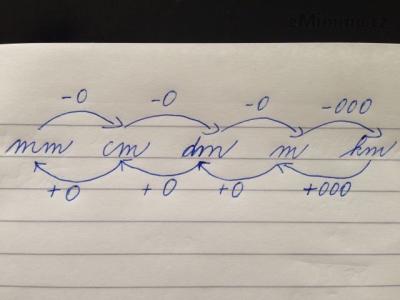 eMimino.cz
-0 -0 -0 -000
mm cm dm m km
+0 +0 +0 +000